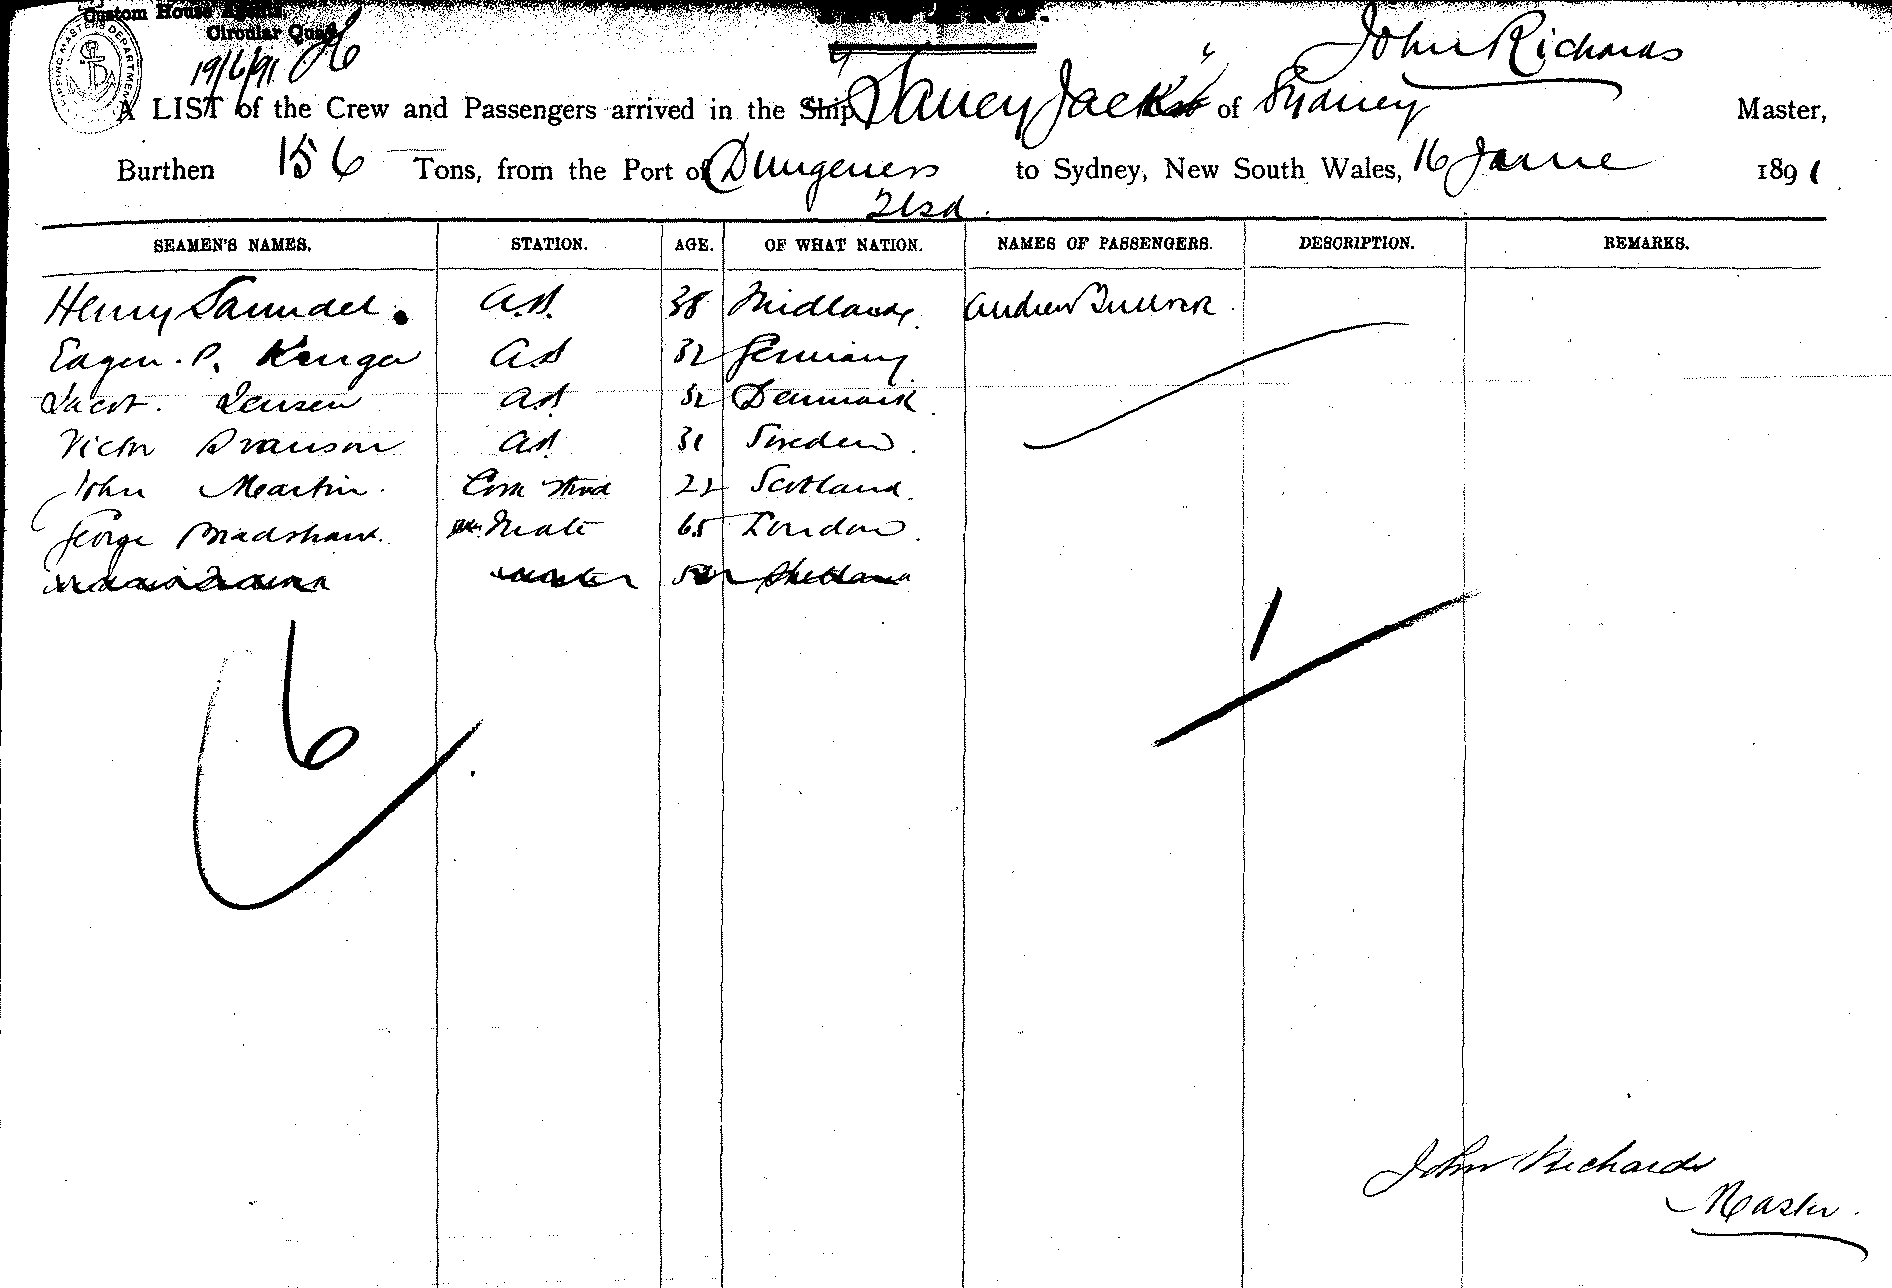 Custom House
Circular Quay
19/6/91
SHIPPING MASTER'S DEPARTMENT
John Richards
A LIST of the Crew and Passengers arrived in the Ship "Jack" of Sydney Master,
Burthen 156 Tons, from the Port of Dungeness to Sydney, New South Wales, 16 June 1891
SEAMEN'S NAMES. STATION. AGE. OF WHAT NATION. NAMES OF PASSENGERS. DESCRIPTION. REMARKS.
Henry A.B. 38 Andrew
P. A.B 32 Germany
Jacob Jensen A.B 32 Denmark
Victor Svanson A.B 31 Sweden
John Martin. 22 Scotland.
George Bradshaw. Mate 65 London.
6
1
John Richards
Master.